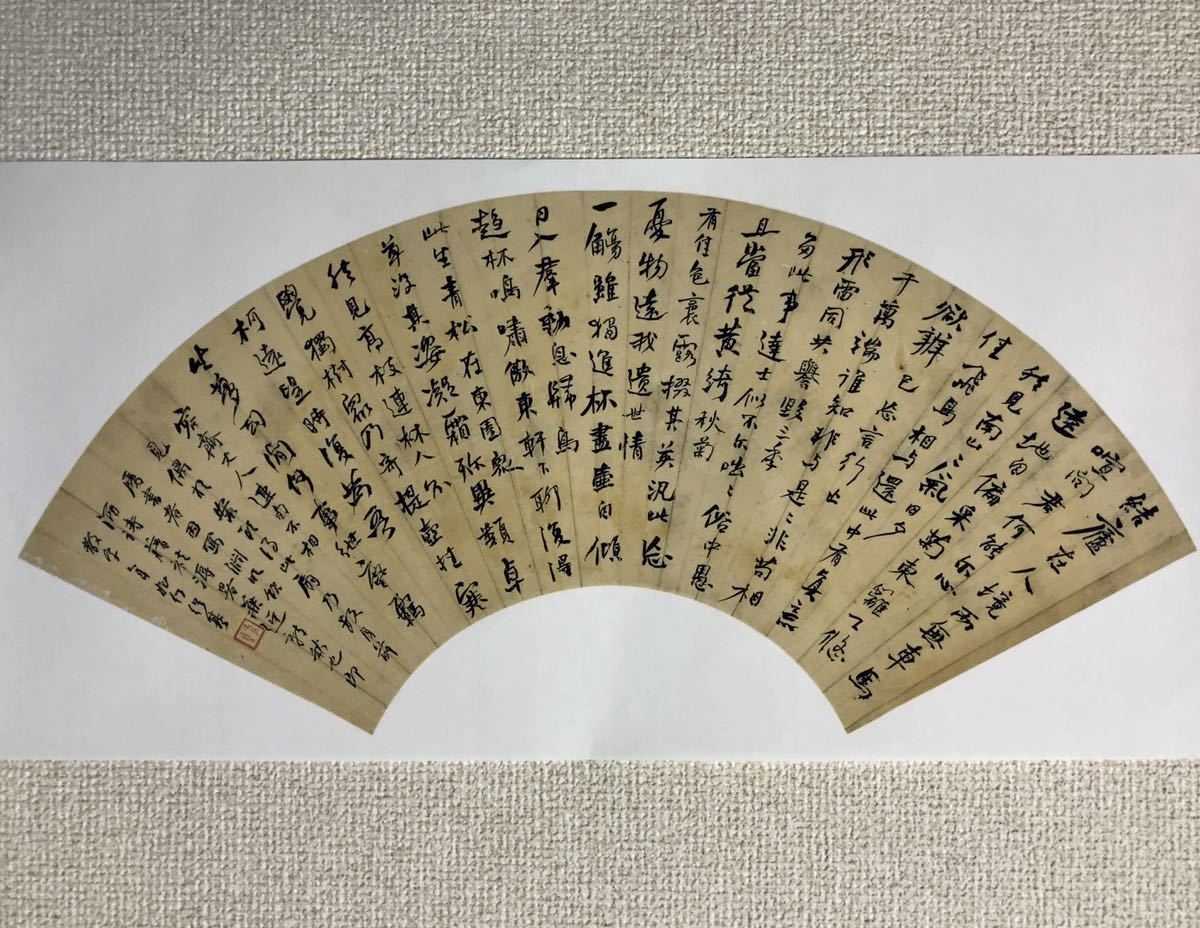 結廬在人境而無車馬
喧問君何能爾心
遠地自偏采菊東籬下悠
然見南山山氣日夕
佳飛鳥相與還此中有真意
欲辨已忘言行止
千萬端誰知非與是是非苟相
形雷同共譽毀三季
多此事達士似不爾咄咄俗中愚
且當從黃綺秋菊
有佳色裛露掇其英汎此忘
憂物遠我遺世情
一觴雖獨進杯盡壺自傾
日入羣動息歸鳥
趨林鳴嘯傲東軒下聊復得
此生青松在東園眾
草沒其姿凝霜殄異類卓
然見高枝連林人不
覺獨樹眾乃奇提壺挂寒
柯遠望時復為吾
生夢幻間何事紲塵羈